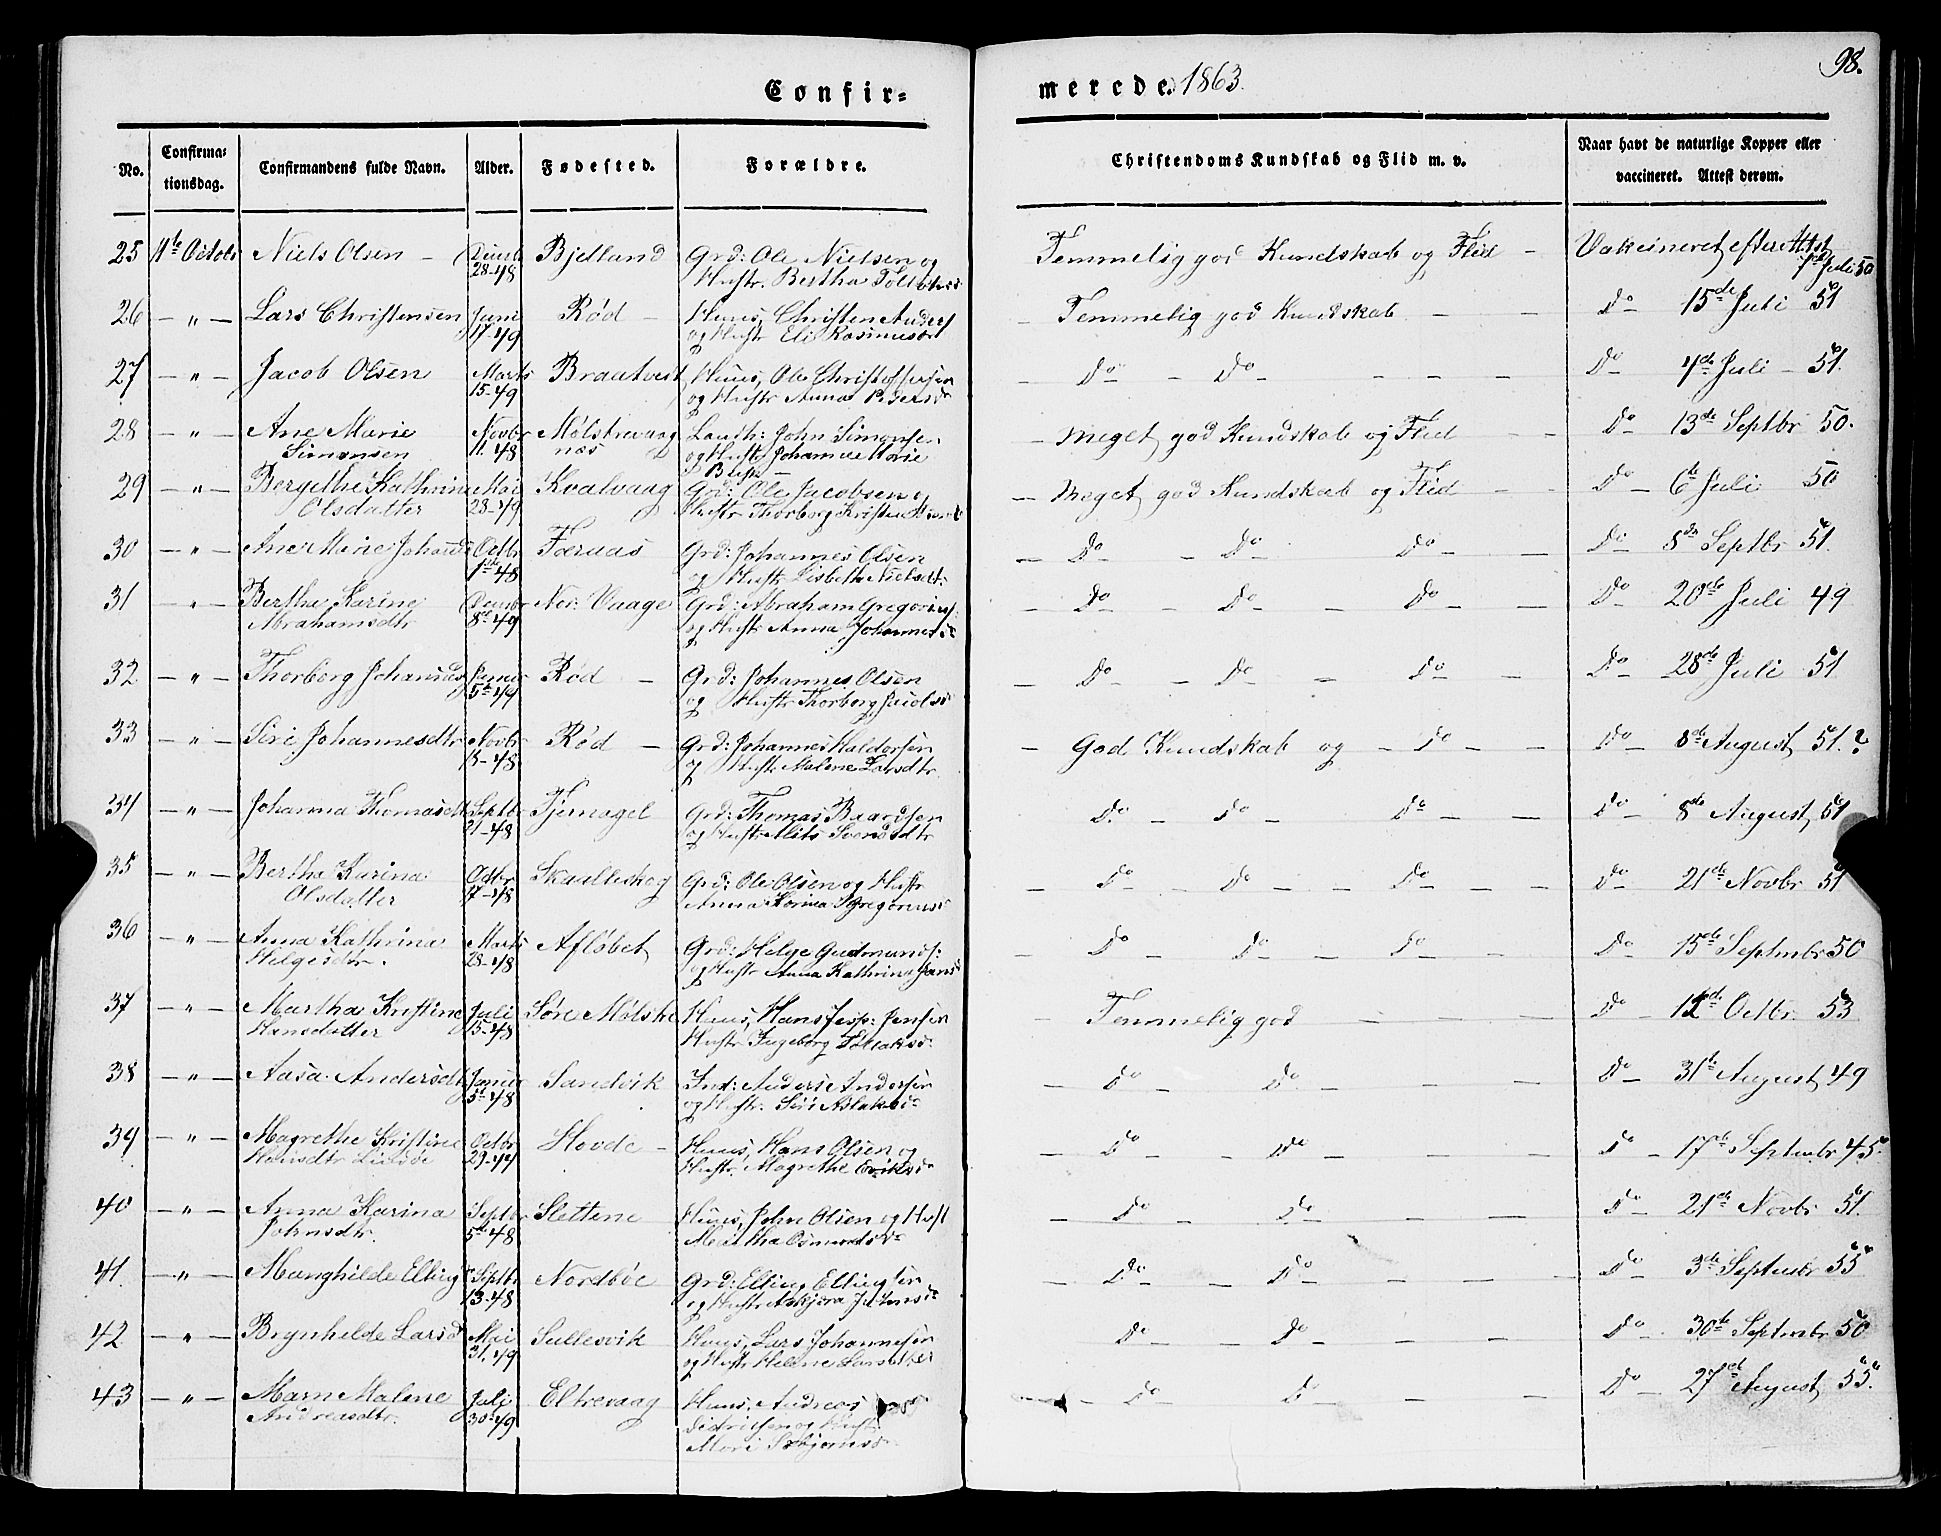 98.
Confir-
merede. 1863.
No.
Confirma-
tionsdag.
Confirmandens fulde Navn.
Alder.
Fødested.
Forældre.
Christendoms Kundskab og Flid m. v.
Naar havt de naturlige Kopper eller
vaccineret. Attest derom.
25 11te Octobr Niels Olsen - 28-48 Bjelland Grd: Ole Nielsen og Temmelig god Kundskab og Flid - Vakcineret efter Attst
Hustr. Bertha Juli 50
26 - " - Lars Christensen Juni 17-49 Rød - Huus, Christen Anders - Temmelig god Kundskab - - Do - 15de Juli 51
og Hustr Eli Rasmusdr
27 - " - Jacob Olsen Marts 15-49 Braatveit Huus, Ole Christoffersen - Do - Do - - - - Do - 4de Juli - 51.
og Hustr Anna Pedersdr
28 - " - Ane Marie Novbr 11.48 Mølstrevaag John Simonsen - Meget god Kundskab og Flid - - Do - 13de Septbr 50.
Simonsen næs og Hustr Johanne Marie
29 - " - Bergithe Kathrine Mai 28-49 Kvalvaag Grd: Ole Jacobsen og - Meget god Kundskab og Flid - - Do - 6te Juli 50
Olsdatter Hustr Thorborg
30 - " - Ane Marie Johansd Octbr 1ste 48 Færaas Grd: Johannes Olsen - Do - Do Do - - Do - 8de Septbr 51.
og Hustr Lisbeth Nielsdt:
31 - " - Berthe Karine 8de 49 Ner: Vaage Grd: Abraham Gregorius - Do - Do - - Do - - Do - 20de Juli 49
Abrahamsdtr og Hustr Anna Johannesd
32 - " - Thorborg Johansd 5te 49 Rød - Grd: Johannes Olsen - Do - Do - - Do - - Do - 28de Juli 51
og Hustr Thorborg
33 - " - Siri Johannesdtr Novbr 15-48 Rød - Grd: Johannes Haldorsen - God Kundskab og - Do - - Do - 8de August 51.?
og Hustr Malene Larsdtr
34 - " - Johanna Thomasdt Septbr 21-48 Tjernagel Grd: Thomas Baardsen Do - Do - Do - - Do - 8de August 51
og Hustr Alits Svendsdtr
35 - " - Bertha Karina Octbr 17-48 Skaalleskog Grd: Ole Olsen og Hustr - Do - Do - - Do - - Do - 21de Novbr 51
Olsdatter Anna Karina Gregorius
36 - " - Anna Kathrina Marts 28-48 Afløbet Grd: Helge Gudmunds: - Do Do - Do - - Do - 15de Septmbr 50
Helgesdtr. og Hustr Anna Kathrina Jans
37 - " - Martha Kristine Juli 15-48 Søre Mølstre Huus, Hans Jesp: Jensen - Temmelig god - - - Do - 12de Octbr. 53
Hansdatter Hustr Ingeborg
38 - " - Aasa Andersdt 5te 48 Sandvik Ind: Anders Andersen - Do - Do - - - Do - 31te August 49
og Hustr: Siri Aslaksd
39 - " - Magrethe Kristine Octbr 29-47 Hovde - Huus, Hans Olsen og - Do - Do - - - Do - 17de Septmbr 45.
Hansdtr Hustr. Magrethe Eriksd
40 - " - Anna Karina Septbr 5te 48 Slettene Huus, John Olsen og Hust - Do - Do - - - Do - 21de Novbr 51.
Johnsdtr. Martha
41. - " - Manghilde Elling Septbr 13-48 Nordbøe Grd: Elling Ellingsen - Do - Do - - - Do - 3de Septmbr 55
og Hustr
42 - " - Brynhilde Larsd Mai 31.49 Sullesvik Huus, Lars Johannesen Do - Do - - - Do - 30te Septmbr 50
og Hustr Helene Larsdtter
43 - " - Marn Malene Juli 30-49 Eltrevaag Huus, Andreas - Do - Do - - - Do - 27de August 55.
Andreasdtr. Didriksen og Hustr